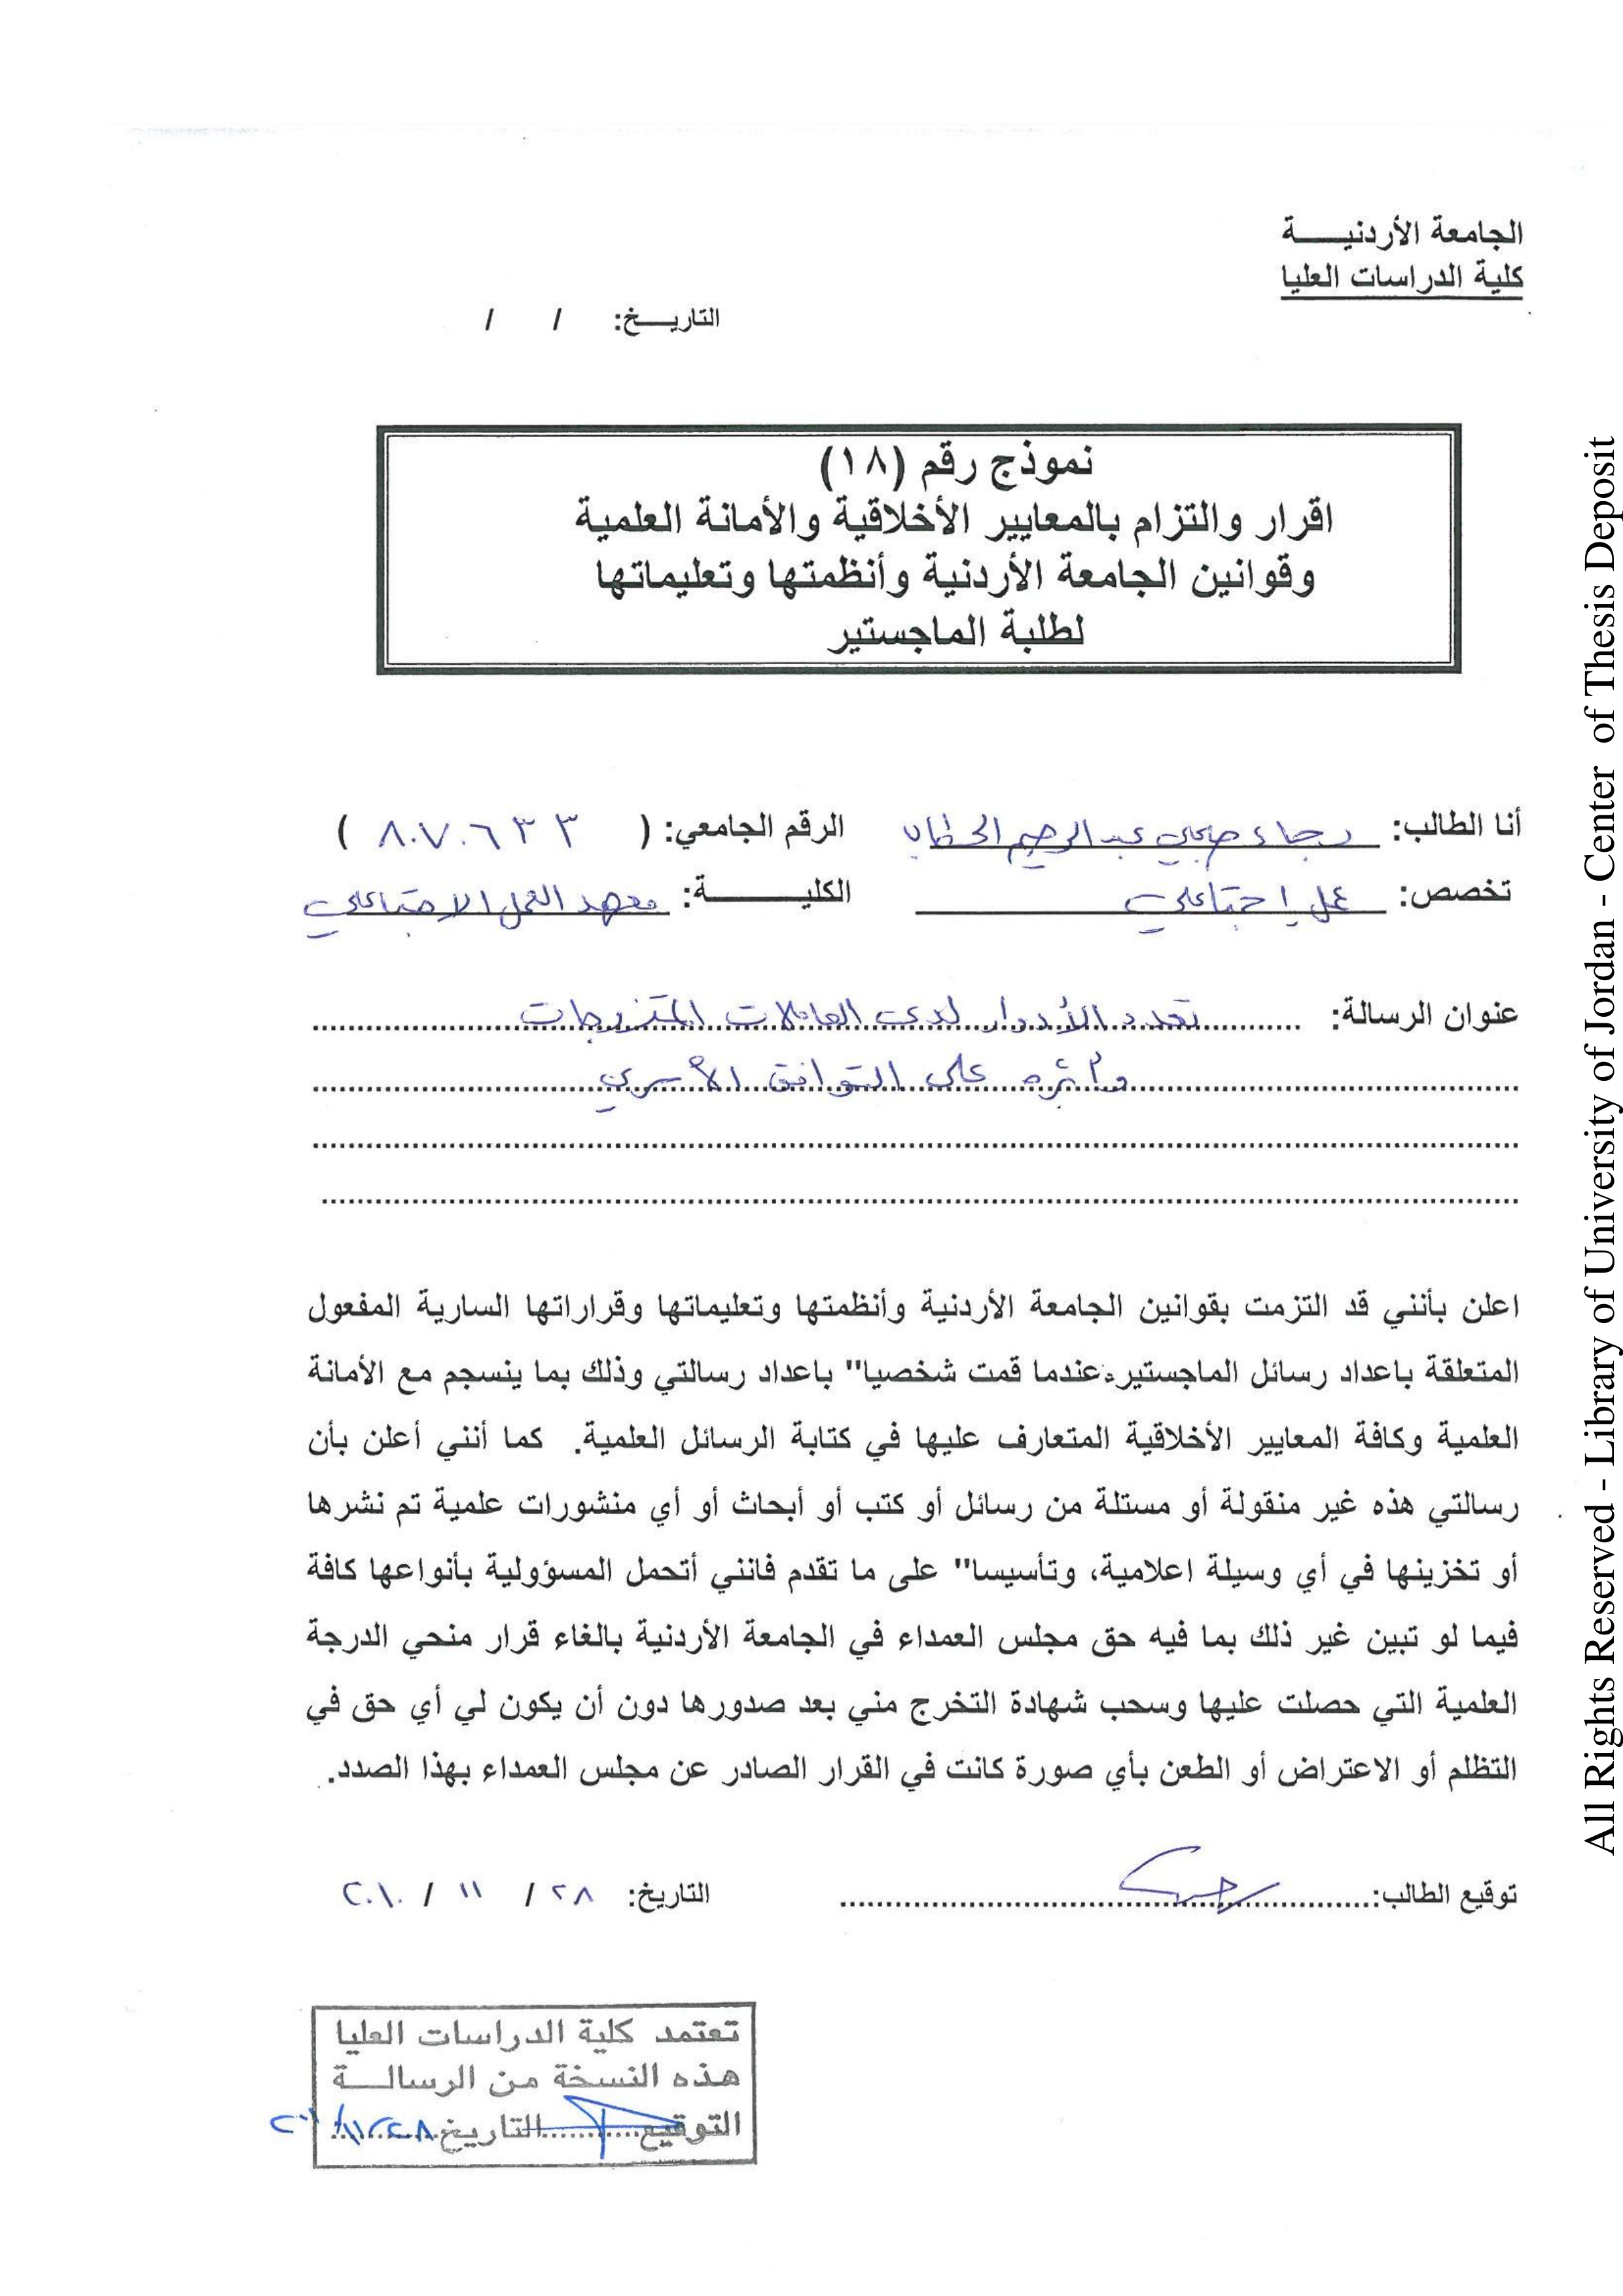 الجامعة الأردنيـــــة
كلية الدراسات العليا
التاريـــخ: / /
نموذج رقم (١٨)
اقرار والتزام بالمعايير الأخلاقية والأمانة العلمية
وقوانين الجامعة الأردنية وأنظمتها وتعليماتها
لطلبة الماجستير
أنا الطالب: رجاء صبحي عبد الرحيم الخطاب الرقم الجامعي: ( ٨٠٧٠٦٣٣ )
تخصص: عمل اجتماعي الكليـــــــة: معهد العمل الاجتماعي
عنوان الرسالة: تعدد الأدوار لدى العاملات المتزوجات
وأثره على التوافق الأسري
اعلن بأنني قد التزمت بقوانين الجامعة الأردنية وأنظمتها وتعليماتها وقراراتها السارية المفعول
المتعلقة باعداد رسائل الماجستير عندما قمت شخصيا" باعداد رسالتي وذلك بما ينسجم مع الأمانة
العلمية وكافة المعايير الأخلاقية المتعارف عليها في كتابة الرسائل العلمية. كما أنني أعلن بأن
رسالتي هذه غير منقولة أو مستلة من رسائل أو كتب أو أبحاث أو أي منشورات علمية تم نشرها
أو تخزينها في أي وسيلة اعلامية، وتأسيسا" على ما تقدم فانني أتحمل المسؤولية بأنواعها كافة
فيما لو تبين غير ذلك بما فيه حق مجلس العمداء في الجامعة الأردنية بالغاء قرار منحي الدرجة
العلمية التي حصلت عليها وسحب شهادة التخرج مني بعد صدورها دون أن يكون لي أي حق في
التظلم أو الاعتراض أو الطعن بأي صورة كانت في القرار الصادر عن مجلس العمداء بهذا الصدد.
توقيع الطالب: التاريخ: ٢٨ / ١١ / ٢٠١٠
تعتمد كلية الدراسات العليا
هذه النسخة من الرسالـــة
التوقيع.........التاريخ
All Rights Reserved - Library of University of Jordan - Center of Thesis Deposit